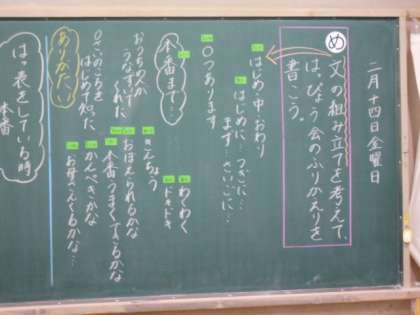 二月十四日金曜日
め
文の組み立てを考えて、
はっぴょう会のふりかえりを
書こう。
はじめ・中・おわり
はじめに…つぎに…
まず…さいごに…
〇つあります
本番まで…
わくわく
ドキドキ
きんちょう
おぼえられるかな
本番うまくできるかな
かんぺきかな
お母さんくるかな…
おうちの人が
うなずいて
くれた
はじめて知った
ありがたい
はっ表をしている時
本番